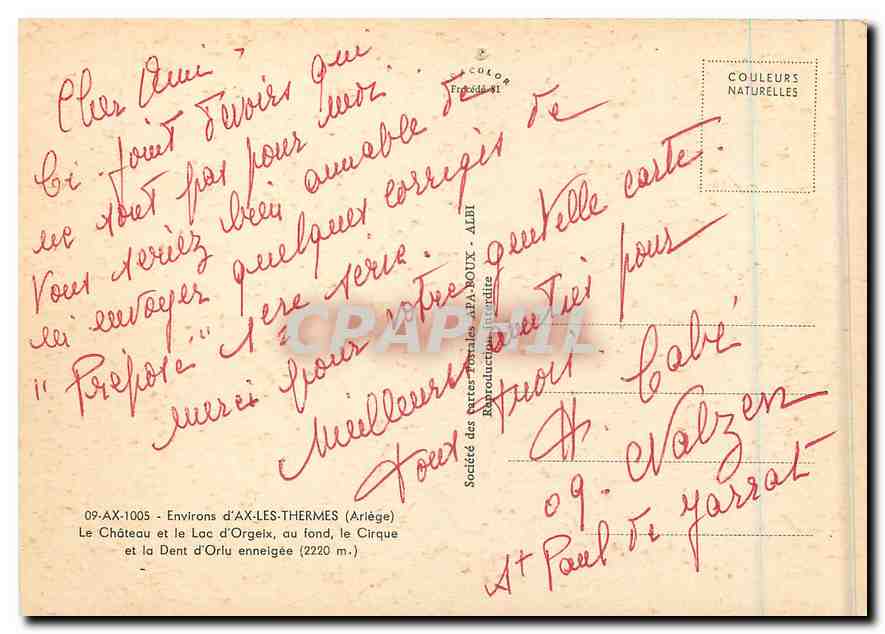 Cher Ami
Ci joint devoirs qui
ne sont pas pour moi.
Vous seriez bien aimable de
m'envoyer quelques corrigés de
"Préposé" 1ère série.
merci pour votre gentille carte.
Meilleures amitiés pour
tous trois.
H. Cabé
09. Nalzen
St Paul de Jarrat
COLOR
Procédé SI
COULEURS
NATURELLES
Société des cartes Postales APA-POUX - ALBI
Reproduction interdite
CPAPHIL
09-AX-1005 - Environs d'AX-LES-THERMES (Ariège)
Le Château et le Lac d'Orgeix, au fond, le Cirque
et la Dent d'Orlu enneigée (2220 m.)